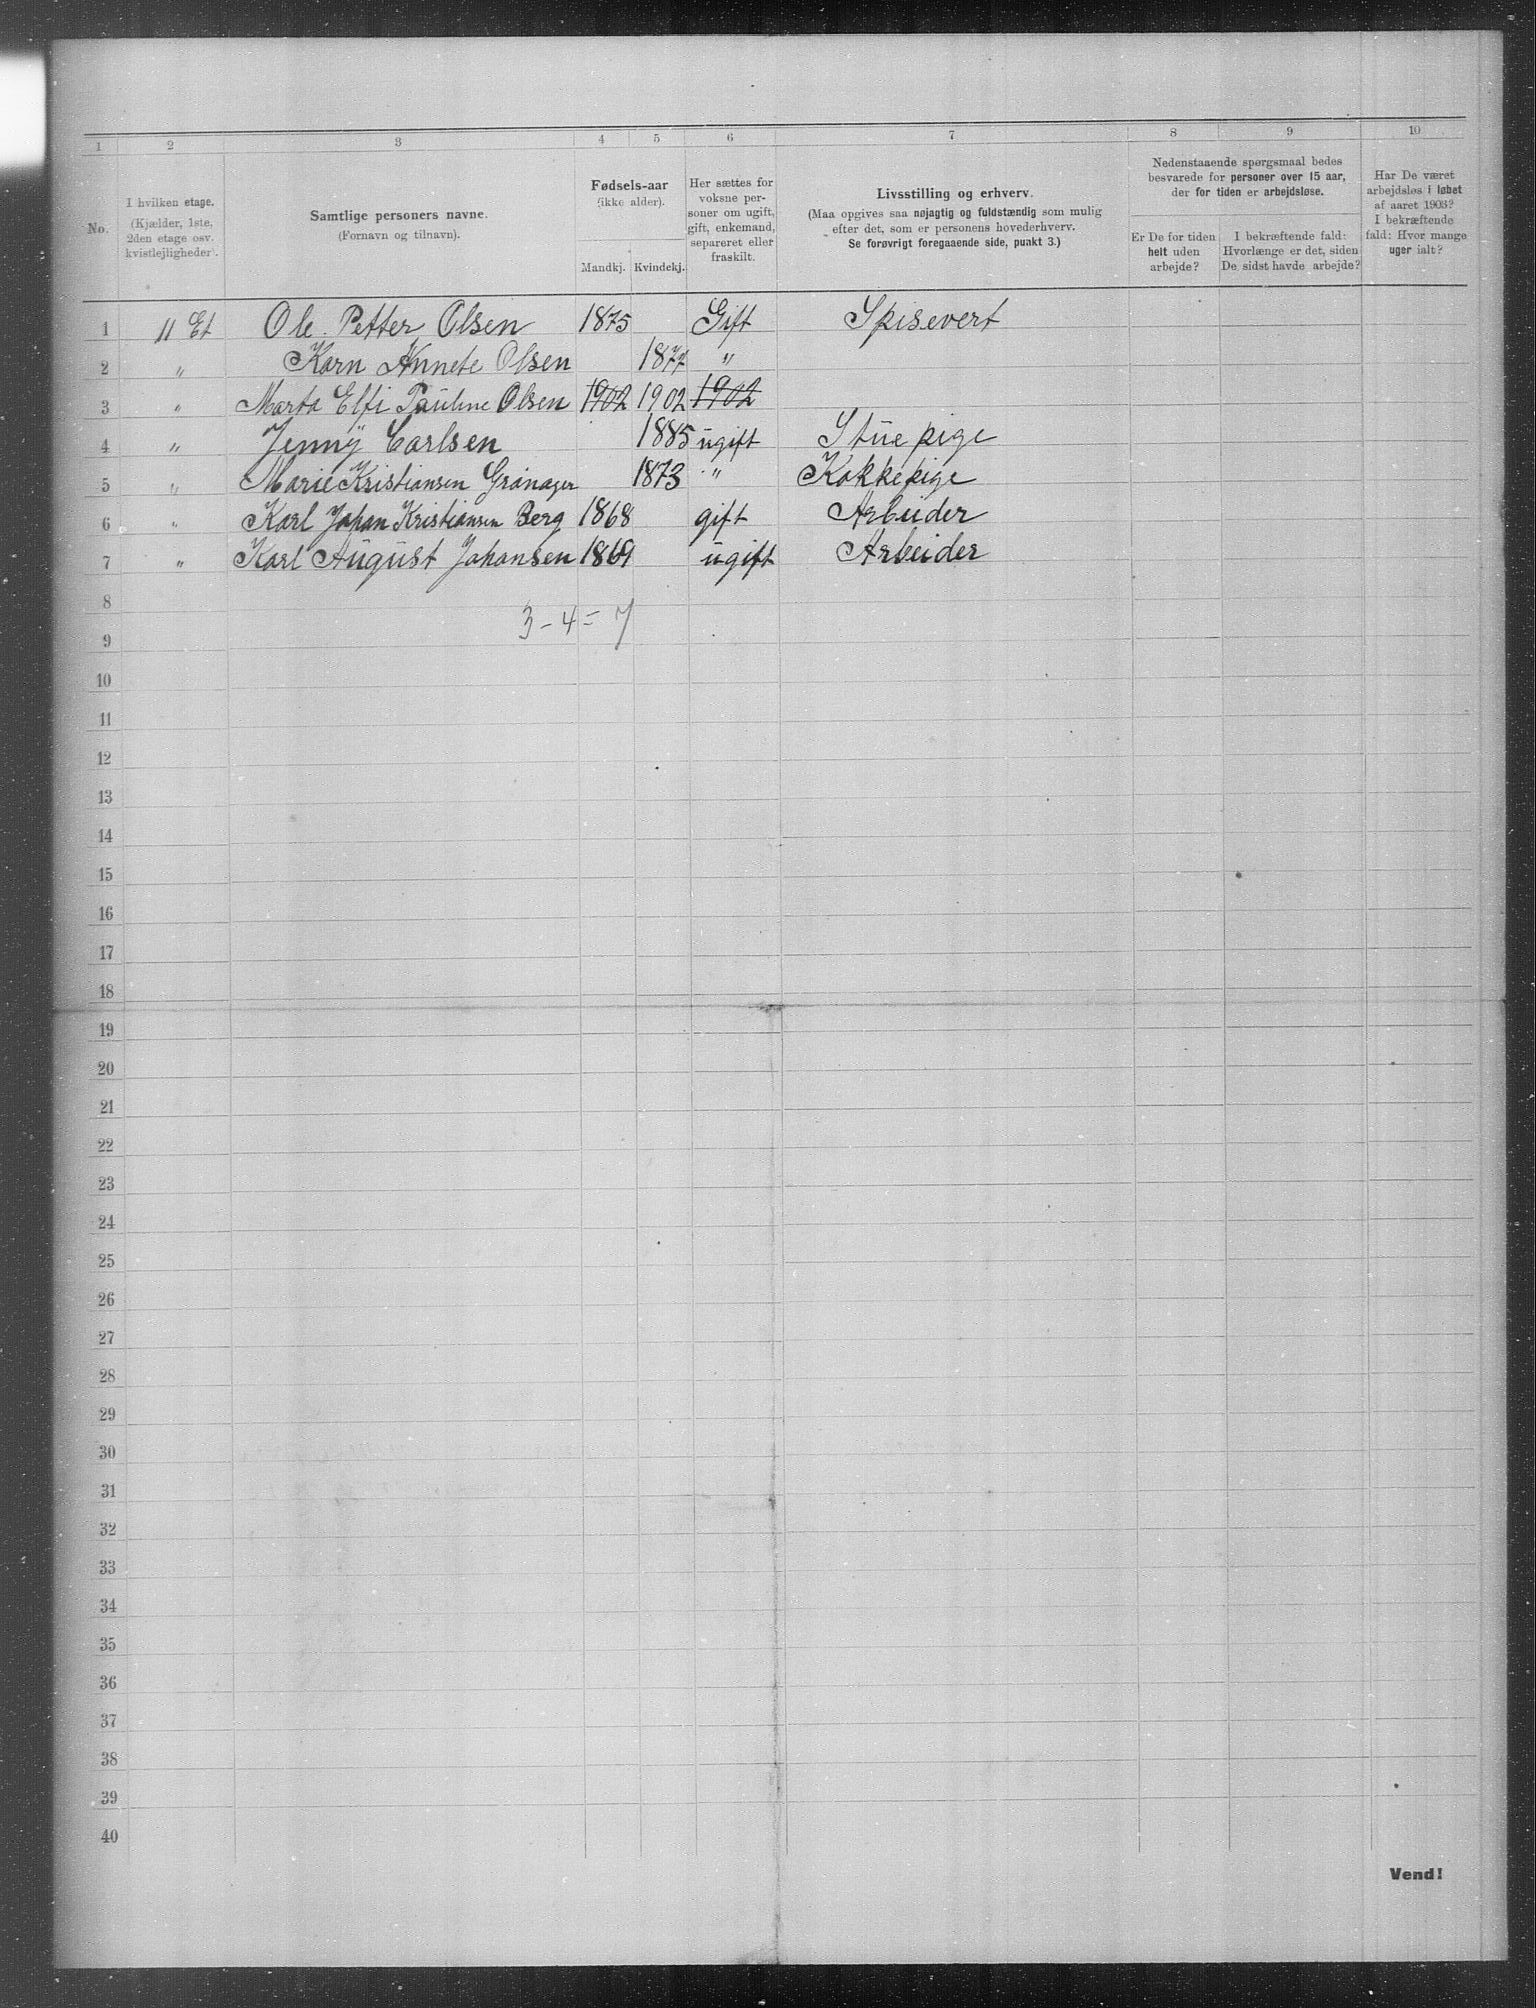 1 2 3 4 5 6 7 8 9 10
No.
I hvilken etage.
(Kjælder, 1ste,
2den etage osv.
kvistlejligheder).
Samtlige personers navne.
(Fornavn og tilnavn).
Fødsels-aar
(ikke alder).
Mandkj. Kvindekj.
Her sættes for
voksne per-
soner om ugift,
gift, enkemand,
separeret eller
fraskilt.
Livsstilling og erhverv.
(Maa opgives saa nøjagtig og fuldstændig som mulig
efter det, som er personens hovederhverv.
Se forøvrigt foregaaende side, punkt 3.)
Nedenstaaende spørgsmaal bedes
besvarede for personer over 15 aar,
der for tiden er arbejdsløse.
Er De for tiden
helt uden
arbejde?
I bekræftende fald:
Hvorlænge er det, siden
De sidst havde arbejde?
Har De været
arbejdsløs i løbet
af aaret 1903?
I bekræftende
fald: Hvor mange
uger ialt?
1 11 Et Ole Petter Olsen 1875 Gift Spisevert
2 " Karn Annete Olsen 1877 "
3 " Marta Elfi Pauline Olsen 1902 1902 1902
4 " Jenny Carlsen 1885 ugift Stue pige
5 " Marie Kristiansen Grønager 1873 " Kokkepige
6 " Karl Johan Kristiansen Berg 1868 gift Arbeider
7 " Karl August Johansen 1869 ugift Arbeider
8
3 - 4 = 7
9
10
11
12
13
14
15
16
17
18
19
20
21
22
23
24
25
26
27
28
29
30
31
32
33
34
35
36
37
38
39
40
Vend!